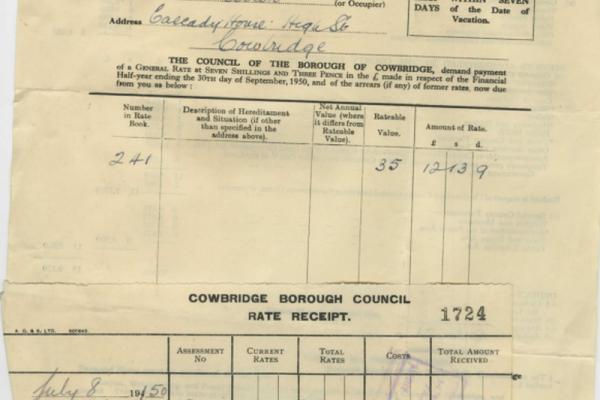 (or Occupier)
DAYS of the Date of
Vacation.
Address Cascady House. High St
Cowbridge
THE COUNCIL OF THE BOROUGH OF COWBRIDGE, demand payment
of a GENERAL RATE at SEVEN SHILLINGS AND THREE PENCE in the £ made in respect of the Financial
Half-year ending the 30TH day of September, 1950, and of the arrears (if any) of former rates, now due
from you as below :
Number in Rate Book.
Description of Hereditament and Situation (if other than specified in the address above).
Net Annual Value (where it differs from Rateable Value).
Rateable Value.
Amount of Rate.
£ s d.
241 35 12 13 9
COWBRIDGE BOROUGH COUNCIL
RATE RECEIPT.
1724
LTD.
ASSESSMENT No
CURRENT RATES
TOTAL RATES
COSTS
TOTAL AMOUNT RECEIVED
July 8 1950